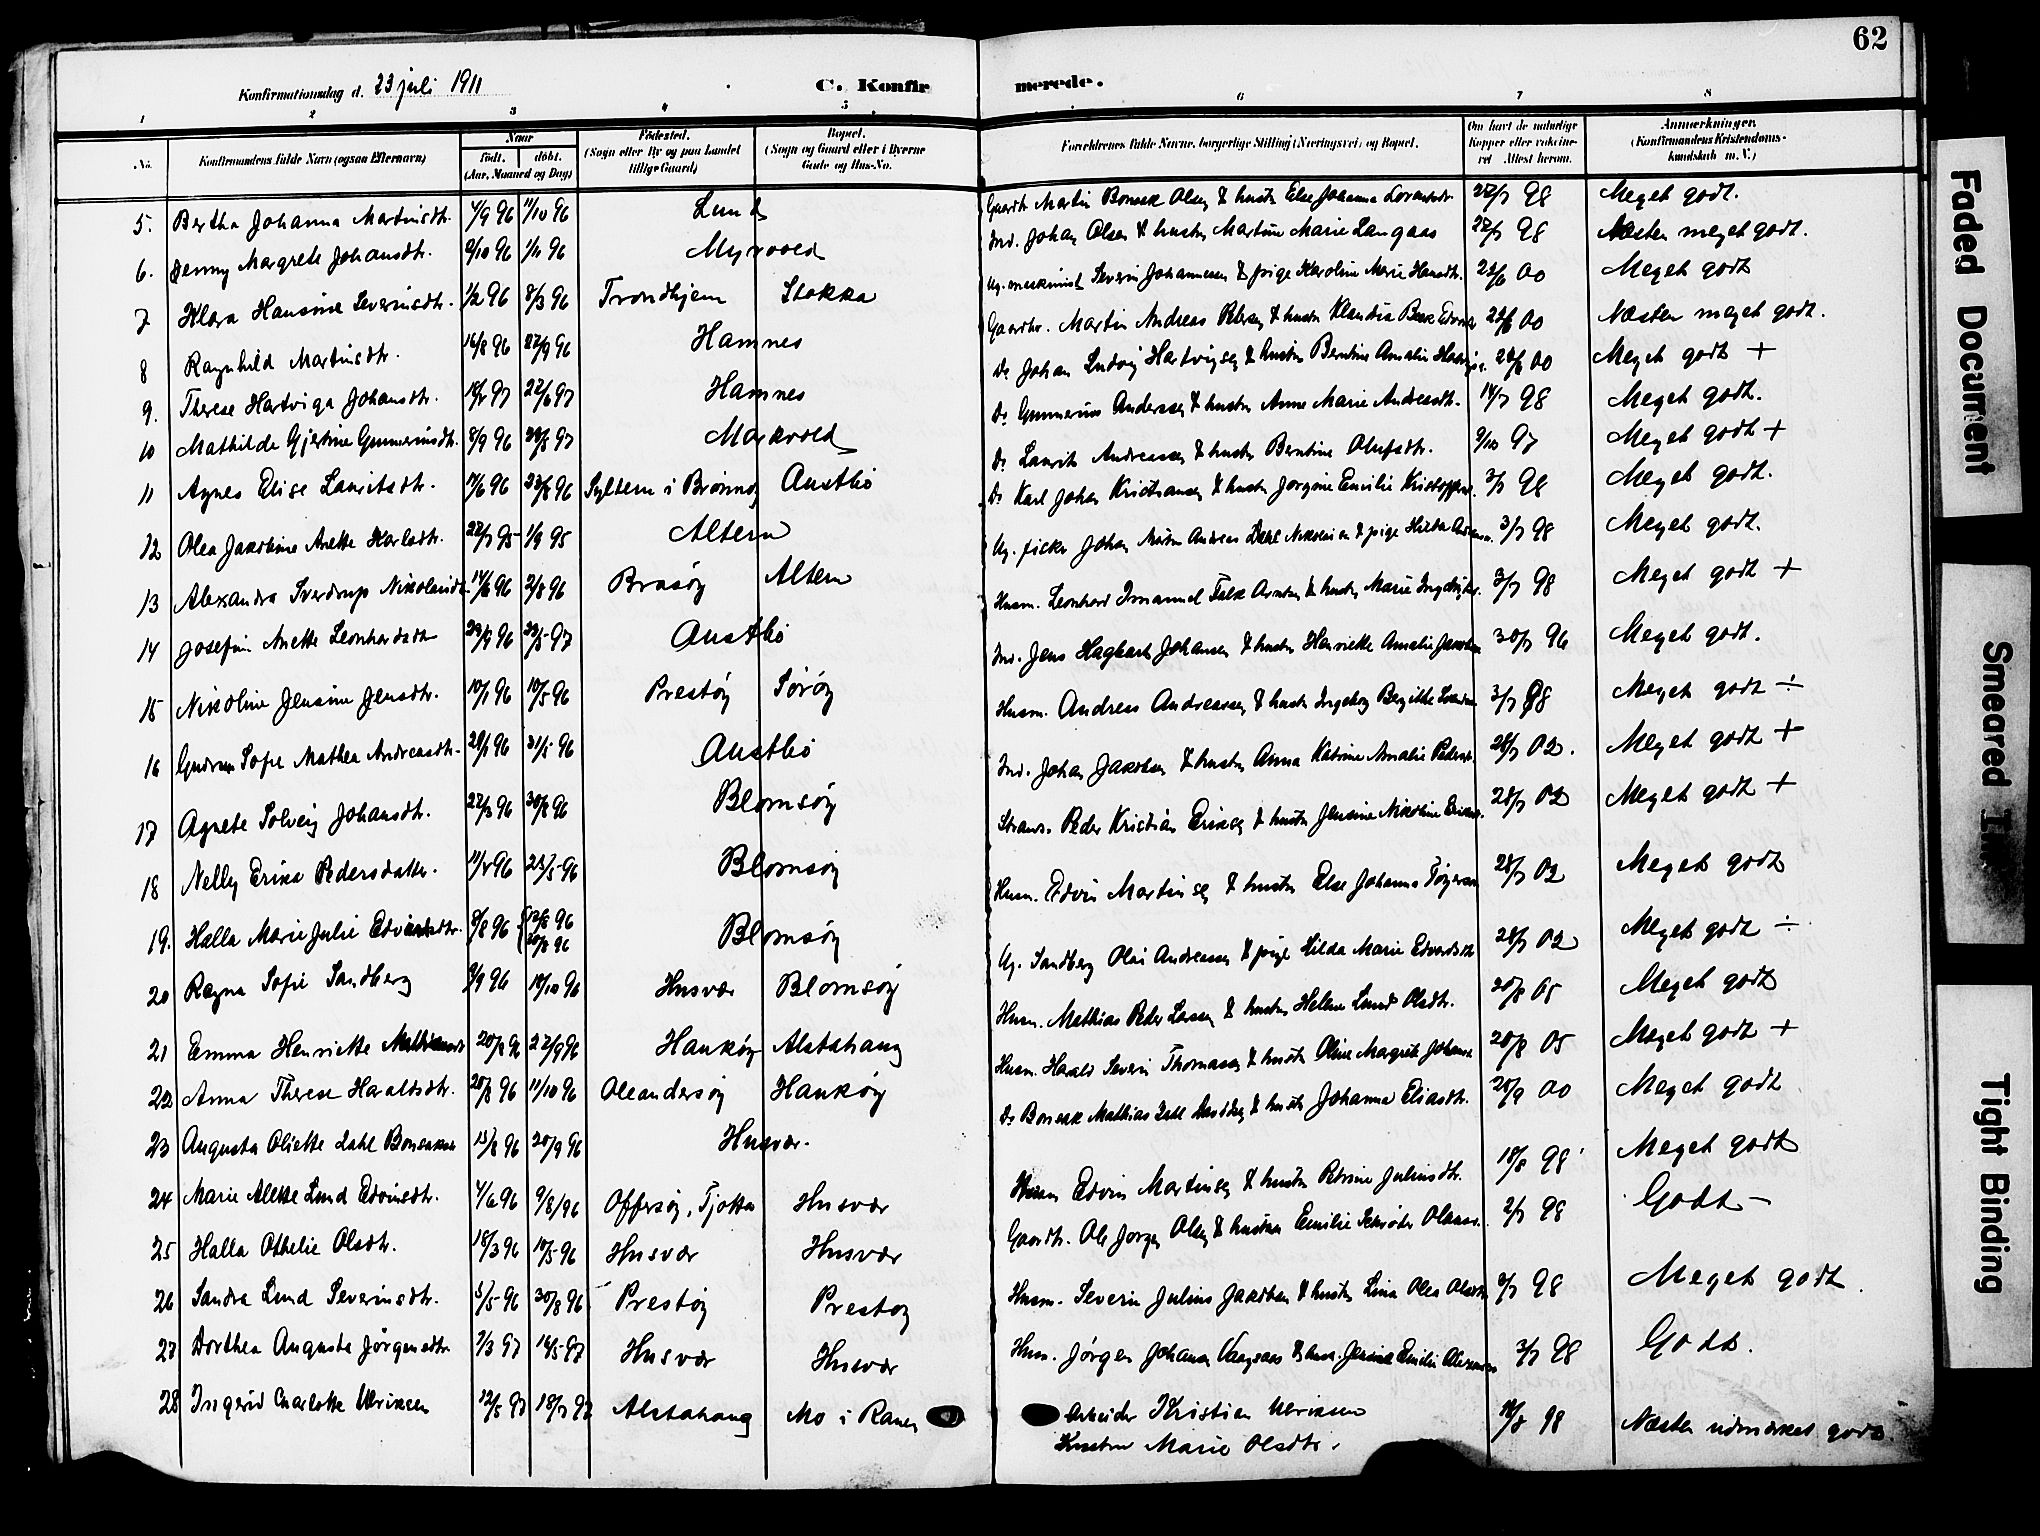 62
Konfirmationsdag d. 23 juli 1911 C. Konfir merede.
1 2 3 4 5 6 7 8
No. Konfirmandens fulde Navn (ogsaa Efternavn) Naar født. døbt. (Aar, Maaned og Dag) Fødested. (Sogn eller By og paa Landet tillige Gaard) Bopæl. (Sogn og Gaard eller i Byerne Gade og Hus-No. Forældrenes fulde Navne, borgerlige Stilling (Næringsvei) og Bopæl. Om havt de naturlige Kopper eller vaccineret Attest herom. Anmærkninger. (Konfirmandens Kristendomskundskab m. V.)
5. Bertha Johanna Martinsdtr. 4/9 96 11/10 96 Lund Gaardbr. Martin Bonsak Olsen & hustru Else Johanna 98 Meget godt.
6. Jenny Margrete Johansdtr. 9/10 96 1/11 96 Myrvold Ind. Johan Olsen & hustru Martine Marie Langaas 98 Næsten meget godt.
7 Klara Hansine Severinsdtr. 1/2 96 8/3 96 Trondhjem Stokka Ug. maskinist Severin Johannesen & pige Karoline Marie Hansdtr. 00 Meget godt
8 Ragnhild Martinsdtr. 16/8 96 27/9 96 Hamnes Gaardbr. Martin Andreas Petersen & hustru Klaudia 00 Næsten meget godt.
9. Therese Hartviga Johansdtr. 97 22/6 97 Hamnes Do Johan Ludvig Hartvigsen & hustru Berntine Amalie 00 Meget godt +
10 Mathilde Gjertine Gunneriusdtr. 8/9 96 97 Markvold Do Gunnerius Andersen & hustru Anne Marie Andreasdtr. 14/7 98 Meget godt.
11 Agnes Elise Lauritsdtr. 96 96 Syltern i Brønnøy Austbø Do Laurits Andreassen & hustru Berntine Olufsdtr. 9/10 97 Meget godt +
12 Olea Jakobine Anette Karlsdtr. 95 1/9 95 Altern Do Karl Johan Kristiansen & hustru Jorgine Emilie 3/7 98 Meget godt.
13 Alexandra Sverdrup Nikolaisdtr. 14/6 96 2/8 96 Brasøy Altern Ug. fisker Johan Andreas Dahl Nikolaisen & pige Hilda 3/7 98 Meget godt.
14 Josefine Anette Leonhardsdtr 96 97 Austbø Husm. Leonhard Imanuel Falk & hustru Marie 3/7 98 Meget godt +
15 Nikoline Jensine Jensdtr. 10/1 96 10/5 96 Prestøy Sørøy Ind. Jens Hagbart Johansen & hustru Henriette Amalie 30/7 96 Meget godt.
16 Gudrun Sofie Mathea Andreasdtr. 96 31/5 96 Austbø Husm. Andreas Andreassen & hustru Ingeborg Bergitte 3/7 98 Meget godt ÷
17 Agnete Solveig Johansdtr. 96 30/8 96 Blomsøy Ind. Johan Jakobsen & hustru Anna Katrine Amalie 28/7 02. Meget godt +
18 Nelly Erika Pedersdatter. 96 96 Blomsøy Peder Kristian Eriksen & hustru Jensine Nikoline 28/7 02 Meget godt +
19. Halla Marie Julie Edvinsdtr. 8/8 96 { 96 96 Blomsøy Husm. Edvin Martinsen & hustru Else Johanna 28/7 02 Meget godt
20 Ragna Sofie Sandberg 9/9 96 10/10 96 Husvær Blomsøy Ug. Sandberg Olai Andreassen & pige Hilda Marie Edvardsdtr 28/7 02 Meget godt ÷
21 Emma Henriette 20/8 96 27/9 96 Haukøy Alstahaug Husm. Mathias Peder Larsen & hustru Helene Lund Olsdtr. 20/8 05 Meget godt
22 Anna Therese Haraldsdtr. 20/8 96 11/10 96 Oleandersøy Haukøy Husm. Harald Severin Thomassen & hustru Oline Magrete 20/8 05 Meget godt +
23 Augusta Oliette Dahl 15/8 96 20/9 96 Husvær. Do Bonsak Mathias Dahl & hustru Johanna Eliasdtr. 20/9 00 Meget godt
24 Marie Alette Lund Edvinsdtr. 4/6 96 9/8/96 Offersøy, Tjøtta Husvær Husm Edvin Martinsen & hustru Petrine Juliusdtr. 18/8 98 Meget godt
25 Halla Othelie Olsdtr. 18/3 96 10/5 96 Husvær Husvær Gaardbr. Ole Jorgen Olsen & hustru Emilie Schrøder 2/7 98 Godt –
26 Sandra Lund Severinsdtr. 5/5 96 30/8 96 Prestøy Prestøy Husm. Severin Julius Jakobsen & hustru Lina Olea 3/7 98 Meget godt.
27 Dorthea Augusta Jørgensdtr 7/3 97 97 Husvær Husvær Husm. Jørgen Johansen & hust. Jensine Emilie 3/7 98 Godt.
28 Ingerid Charlotte Ulriksen 97 18/7 97 Alstahaug Mo i Ranen Arbeider Kristian Ulriksen 98 Næsten udmærket godt.
Hustru Marie Olsdtr.
Faded Document
Smeared Ink
Tight Binding